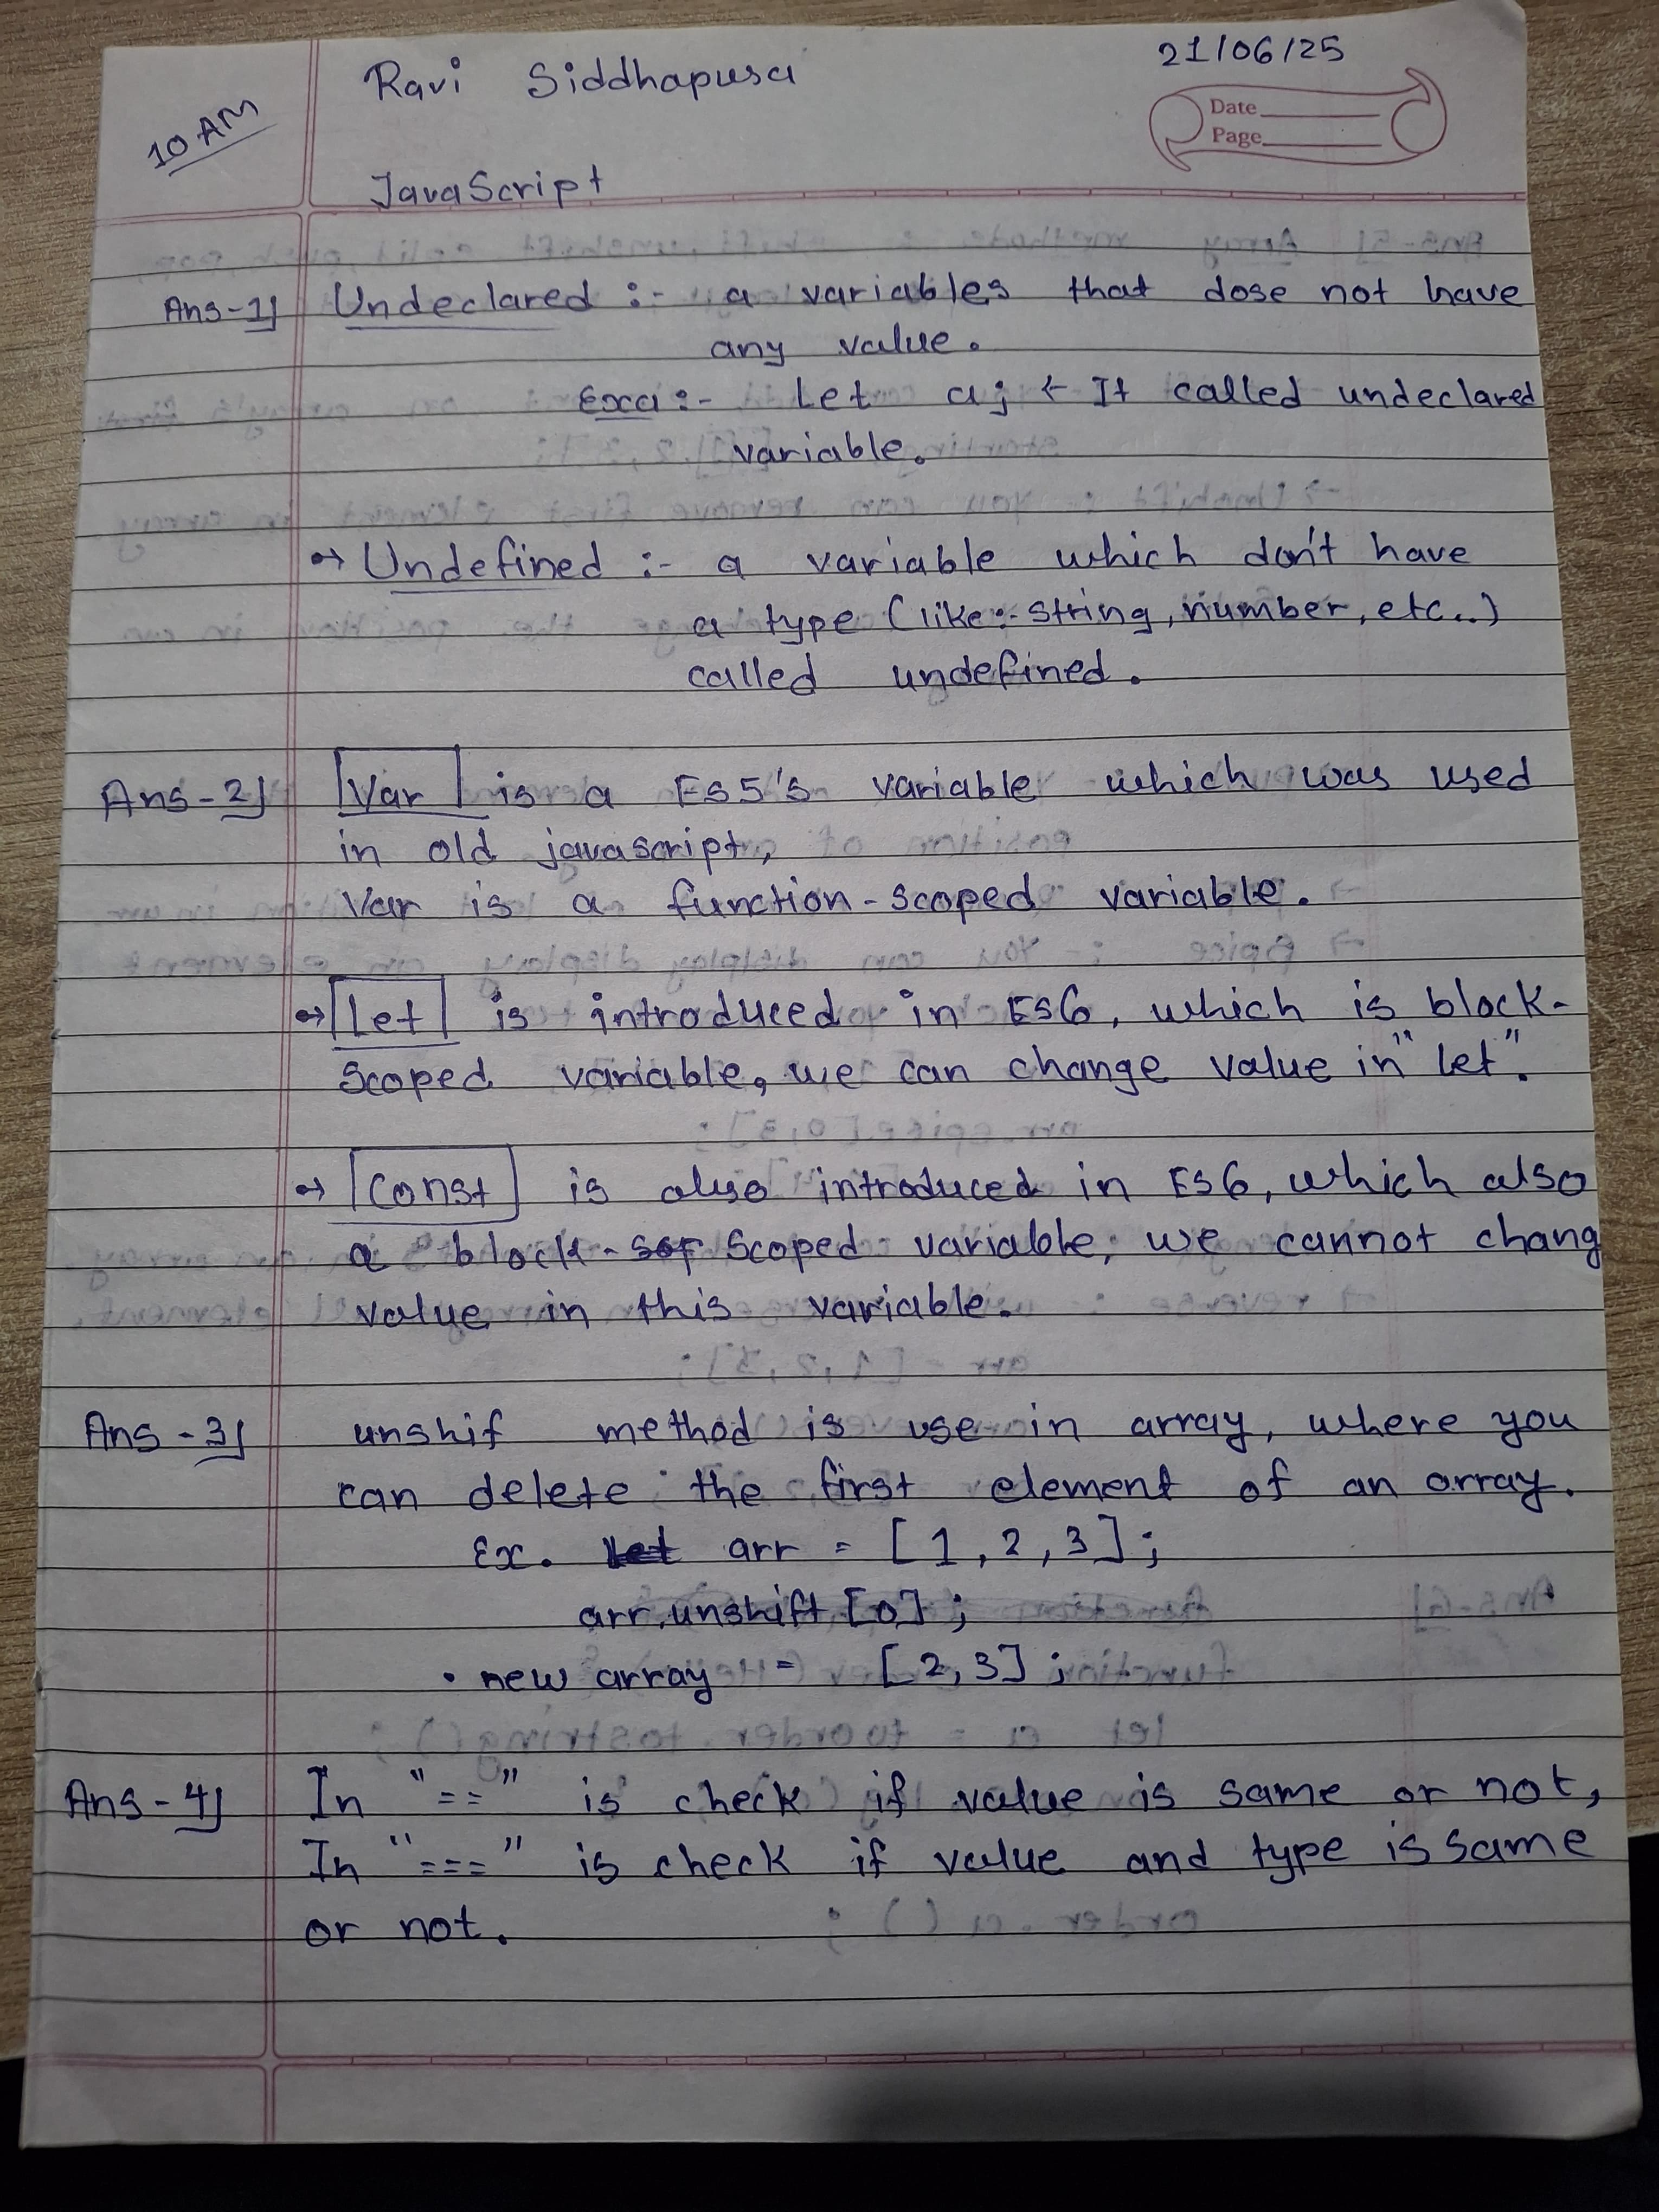 21/06/25
Ravi Siddhapura
10 AM
Date
Page
JavaScript
Ans-1] Undeclared :- a variables that dose not have
any value.
Exa:- Let a; ← It called undeclared
variable.
→ Undefined :- a variable which don't have
a type (like:- string, number, etc..)
called undefined.
Ans-2] Var is a ES5's variable which was used
in old javascript,
Var is a function-scoped variable.
→ Let is introduced in ES6, which is block-
scoped variable, we can change value in "let".
→ const is also introduced in ES6, which also
a block- scoped variable, we cannot chang
value in this variable.
Ans-3] unshif method is use in array, where you
can delete the first element of an array.
Ex. let arr = [1,2,3];
arr.unshift[0];
• new array = [2,3];
Ans-4] In "==" is check if value is same or not,
In "===" is check if value and type is same
or not.